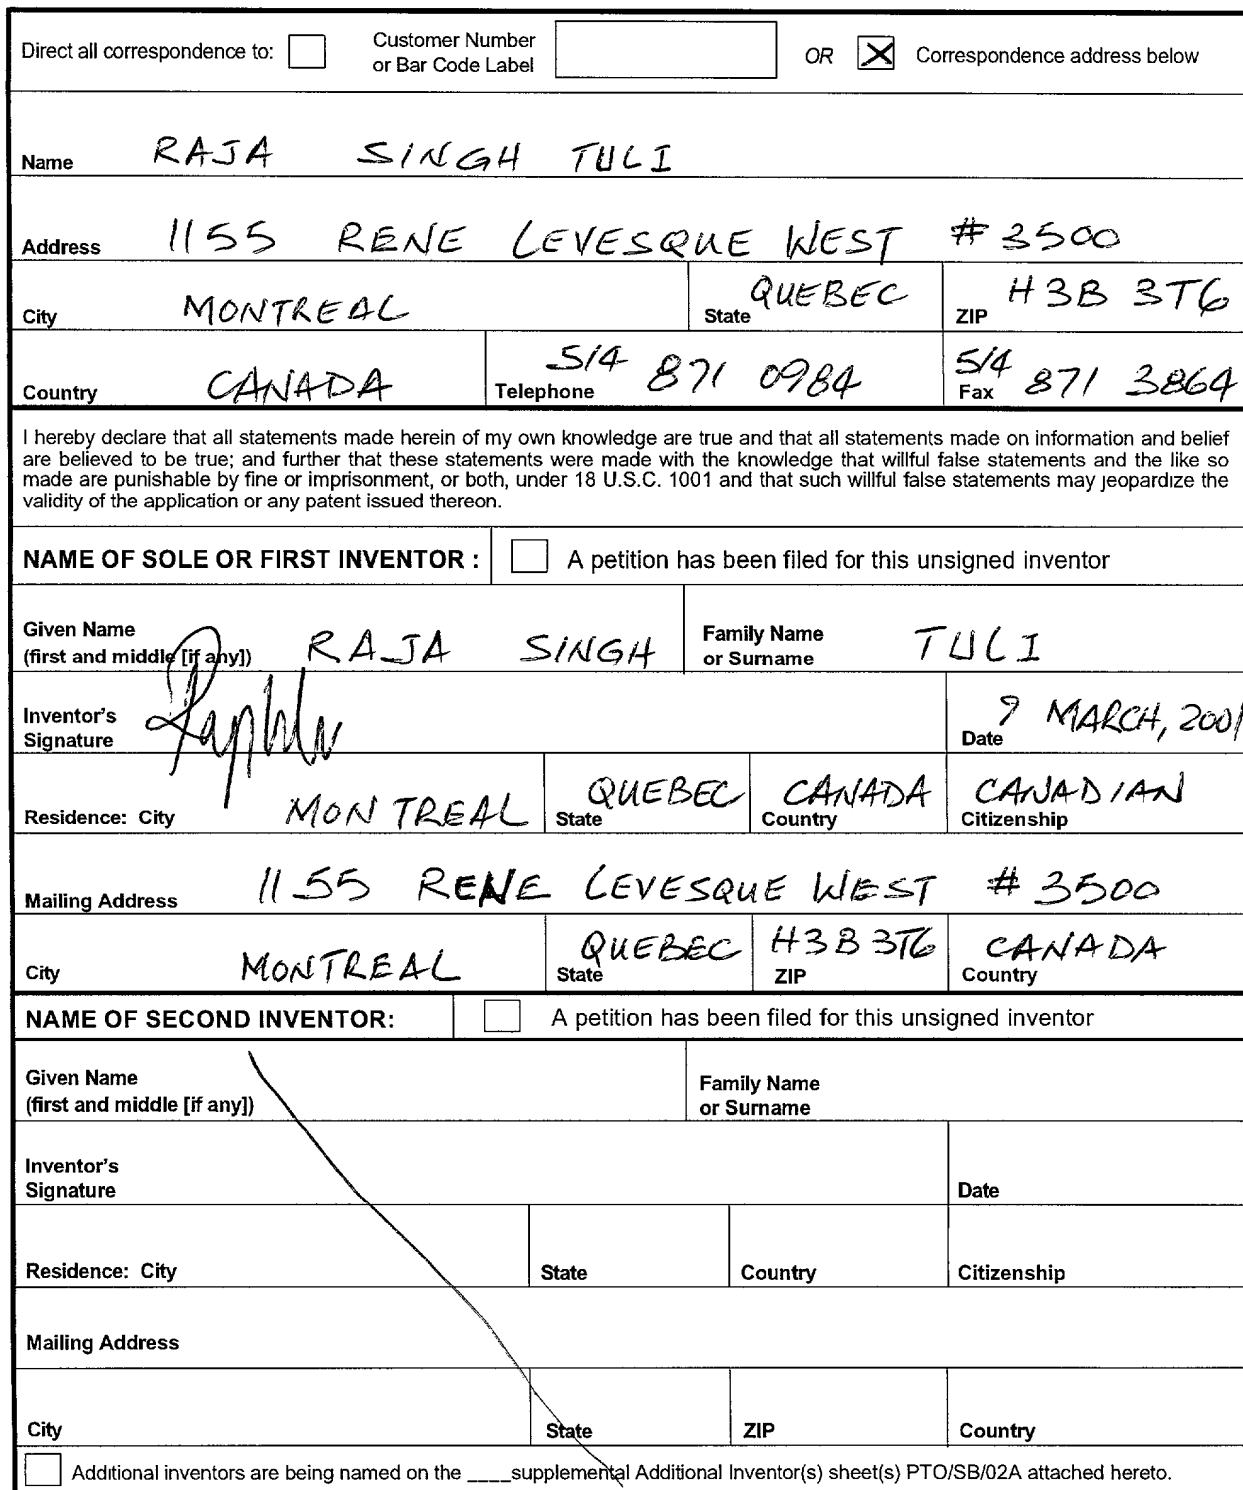 Direct all correspondence to: Customer Number or Bar Code Label OR X Correspondence address below
Name RAJA SINGH TULI
Address 1155 RENE LEVESQUE WEST # 3500
City MONTREAL State QUEBEC ZIP H3B 3T6
Country CANADA Telephone 514 871 0984 Fax 514 871 3864
I hereby declare that all statements made herein of my own knowledge are true and that all statements made on information and belief
are believed to be true; and further that these statements were made with the knowledge that willful false statements and the like so
made are punishable by fine or imprisonment, or both, under 18 U.S.C. 1001 and that such willful false statements may jeopardize the
validity of the application or any patent issued thereon.
NAME OF SOLE OR FIRST INVENTOR : A petition has been filed for this unsigned inventor
Given Name (first and middle [if any]) RAJA SINGH Family Name or Surname TULI
Inventor's Signature Date 9 MARCH, 2001
Residence: City MONTREAL State QUEBEC Country CANADA Citizenship CANADIAN
Mailing Address 1155 RENE LEVESQUE WEST # 3500
City MONTREAL State QUEBEC ZIP H3B 3T6 Country CANADA
NAME OF SECOND INVENTOR: A petition has been filed for this unsigned inventor
Given Name (first and middle [if any]) Family Name or Surname
Inventor's Signature Date
Residence: City State Country Citizenship
Mailing Address
City State ZIP Country
Additional inventors are being named on the ____supplemental Additional Inventor(s) sheet(s) PTO/SB/02A attached hereto.